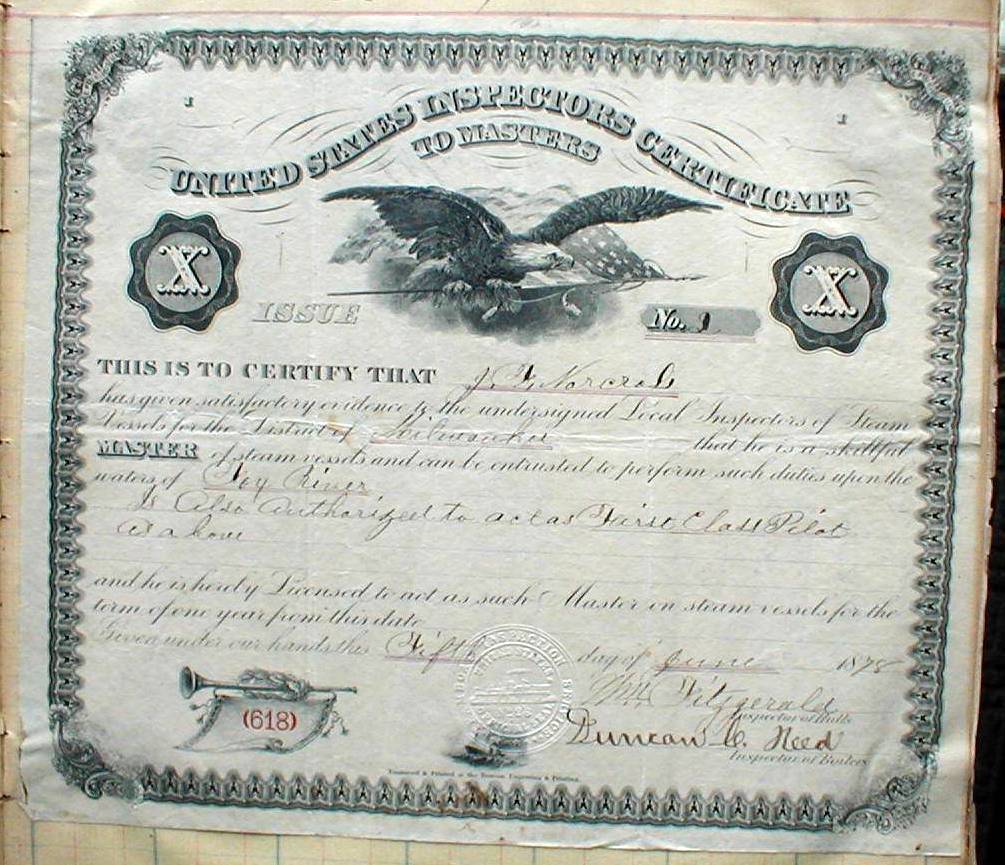 1 1
UNITED STATES INSPECTORS CERTIFICATE
TO MASTERS
X X
ISSUE No. 1
THIS IS TO CERTIFY THAT J. F. Norcross
has given satisfactory evidence to the undersigned Local Inspectors of Steam
Vessels for the District of Milwaukee that he is a skillful
MASTER of steam vessels and can be entrusted to perform such duties upon the
waters of Fox River
Is Also Authorized to act as First Class Pilot
as above
and he is hereby Licensed to act as such Master on steam vessels for the
term of one year from this date
Given under our hands this Fifth day of June 1878
Wm Fitzgerald
Inspector of Hulls
Duncan C. Reed
Inspector of Boilers
(618)
Engraved & Printed at the Bureau, Engraving & Printing.